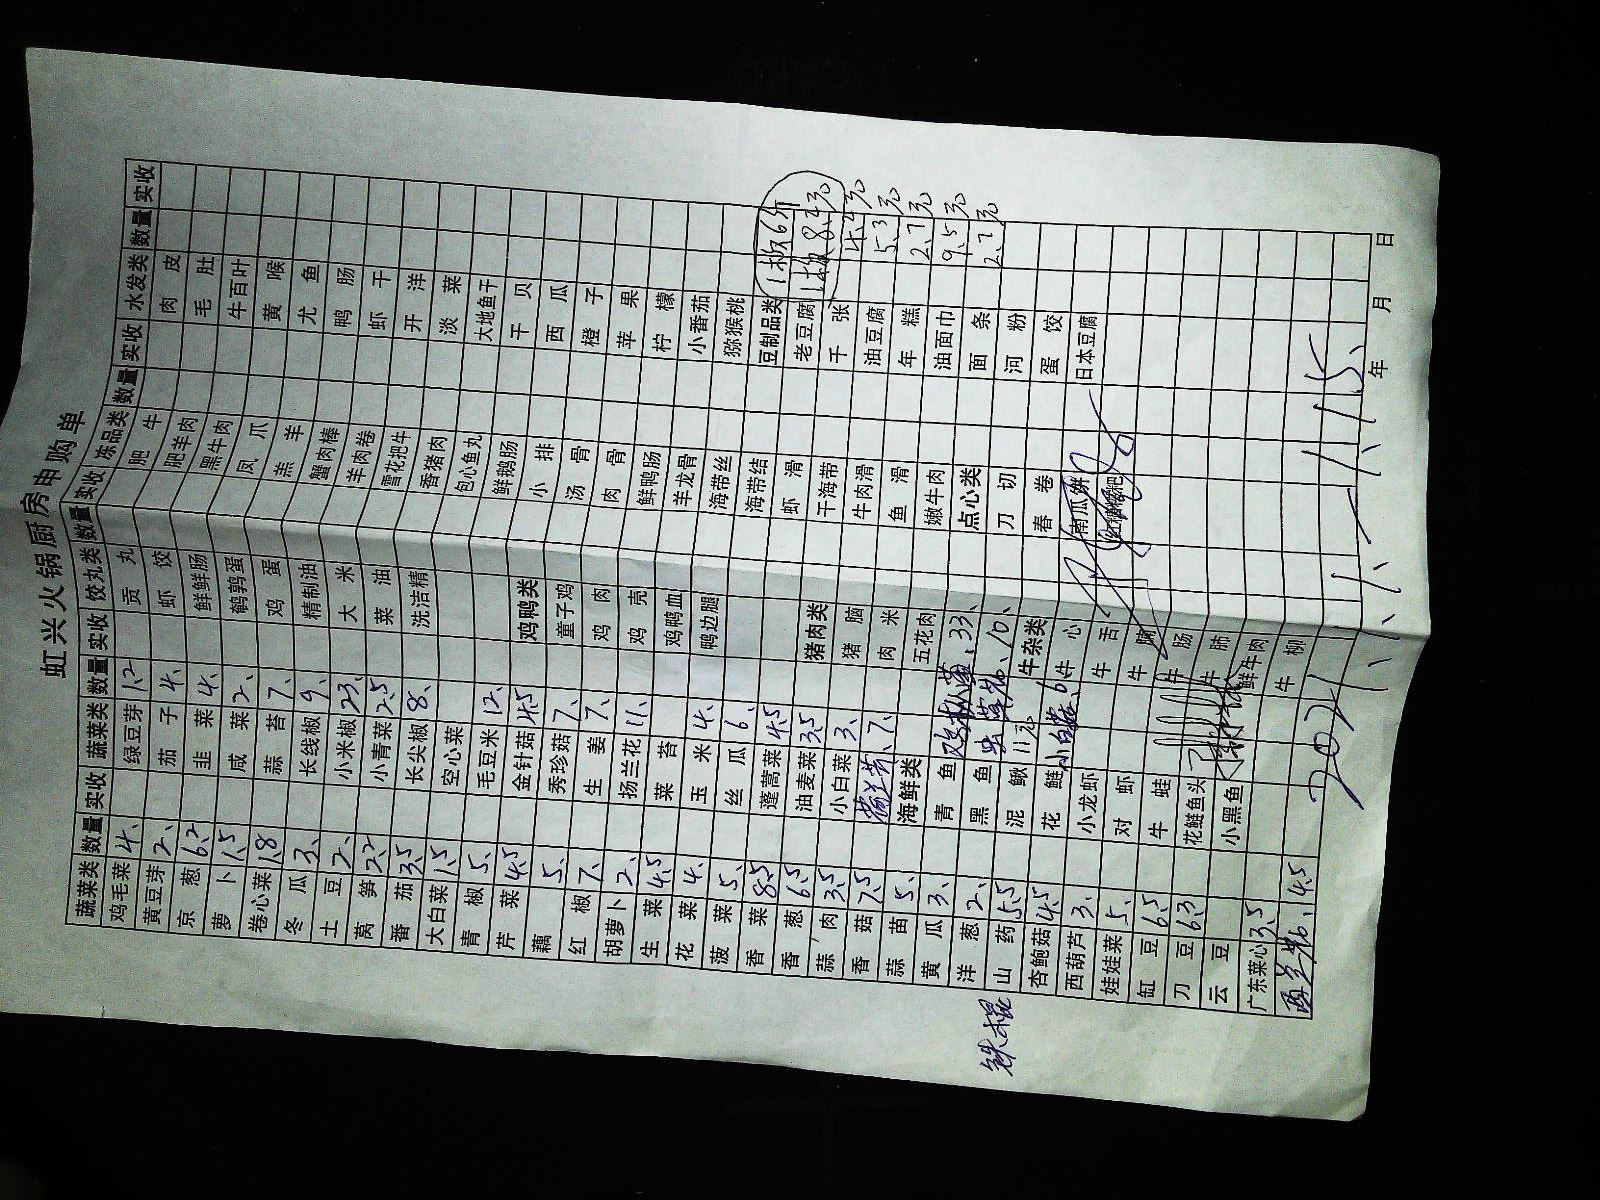 虹兴火锅厨房申购单
蔬菜类 数量 实收 蔬菜类 数量 实收 饺丸类 数量 实收 冻品类 数量 实收 水发类 数量 实收
鸡毛菜 4、 绿豆芽 1.2 贡丸 肥牛 肉皮
黄豆芽 2、 茄子 4、 虾饺 肥羊肉 毛肚
京葱 6.2 韭菜 4、 鲜鲜肠 黑牛肉 牛百叶
萝卜 1.5 咸菜 2、 鹌鹑蛋 凤爪 黄喉
卷心菜 1.8 蒜苔 7、 鸡蛋 羔羊 尤鱼
冬瓜 3、 长线椒 9、 精制油 蟹肉棒 鸭肠
土豆 2、 小米椒 23、 大米 羊肉卷 虾干
莴笋 2.2 小青菜 2.5 菜油 雪花把牛 开洋
番茄 3.5 长尖椒 8、 洗洁精 香猪肉 淡菜
大白菜 1.5 空心菜 包心鱼丸 大地鱼干
青椒 5、 毛豆米 12、 鲜鹅肠 干贝
芹菜 4.5 金针菇 4.5 鸡鸭类 小排 西瓜
藕 5、 秀珍菇 7、 童子鸡 汤骨 橙子
红椒 7、 生姜 7、 鸡肉 肉骨 苹果
胡萝卜 2、 扬兰花 11、 鸡壳 鲜鸭肠 柠檬
生菜 4.5 菜苔 鸡鸭血 羊龙骨 小番茄
花菜 4、 玉米 4、 鸭边腿 海带丝 猕猴桃
菠菜 5、 丝瓜 6、 海带结 豆制品类 1板6斤
香菜 8.5 蓬蒿菜 4.5 虾滑 老豆腐 1板8.4元
香葱 6.5 油麦菜 3.5 猪肉类 干海带 千张 4.4元
蒜肉 3.5 小白菜 3、 猪脑 牛肉滑 油豆腐 5.3元
香菇 7.5 7、 肉米 鱼滑 年糕 2.7元
蒜苗 5、 海鲜类 五花肉 嫩牛肉 油面巾 9.5元
黄瓜 3、 青鱼 33、 点心类 面条 2.7元
洋葱 2、 黑鱼 10、 刀切 河粉
铁棍 山药 5.5 泥鳅 11元 牛杂类 春卷 蛋饺
杏鲍菇 4.5 花鲢 6、 牛心 南瓜饼 日本豆腐
西葫芦 3、 小龙虾 牛舌 红糖糍粑
娃娃菜 5、 对虾 牛
缸豆 6.5 牛蛙 牛肠
刀豆 6.3 花鲢鱼头 牛肺
云豆 小黑鱼 鲜牛肉
广东菜心 3.5 牛柳
西兰花、4.5
年 月 日